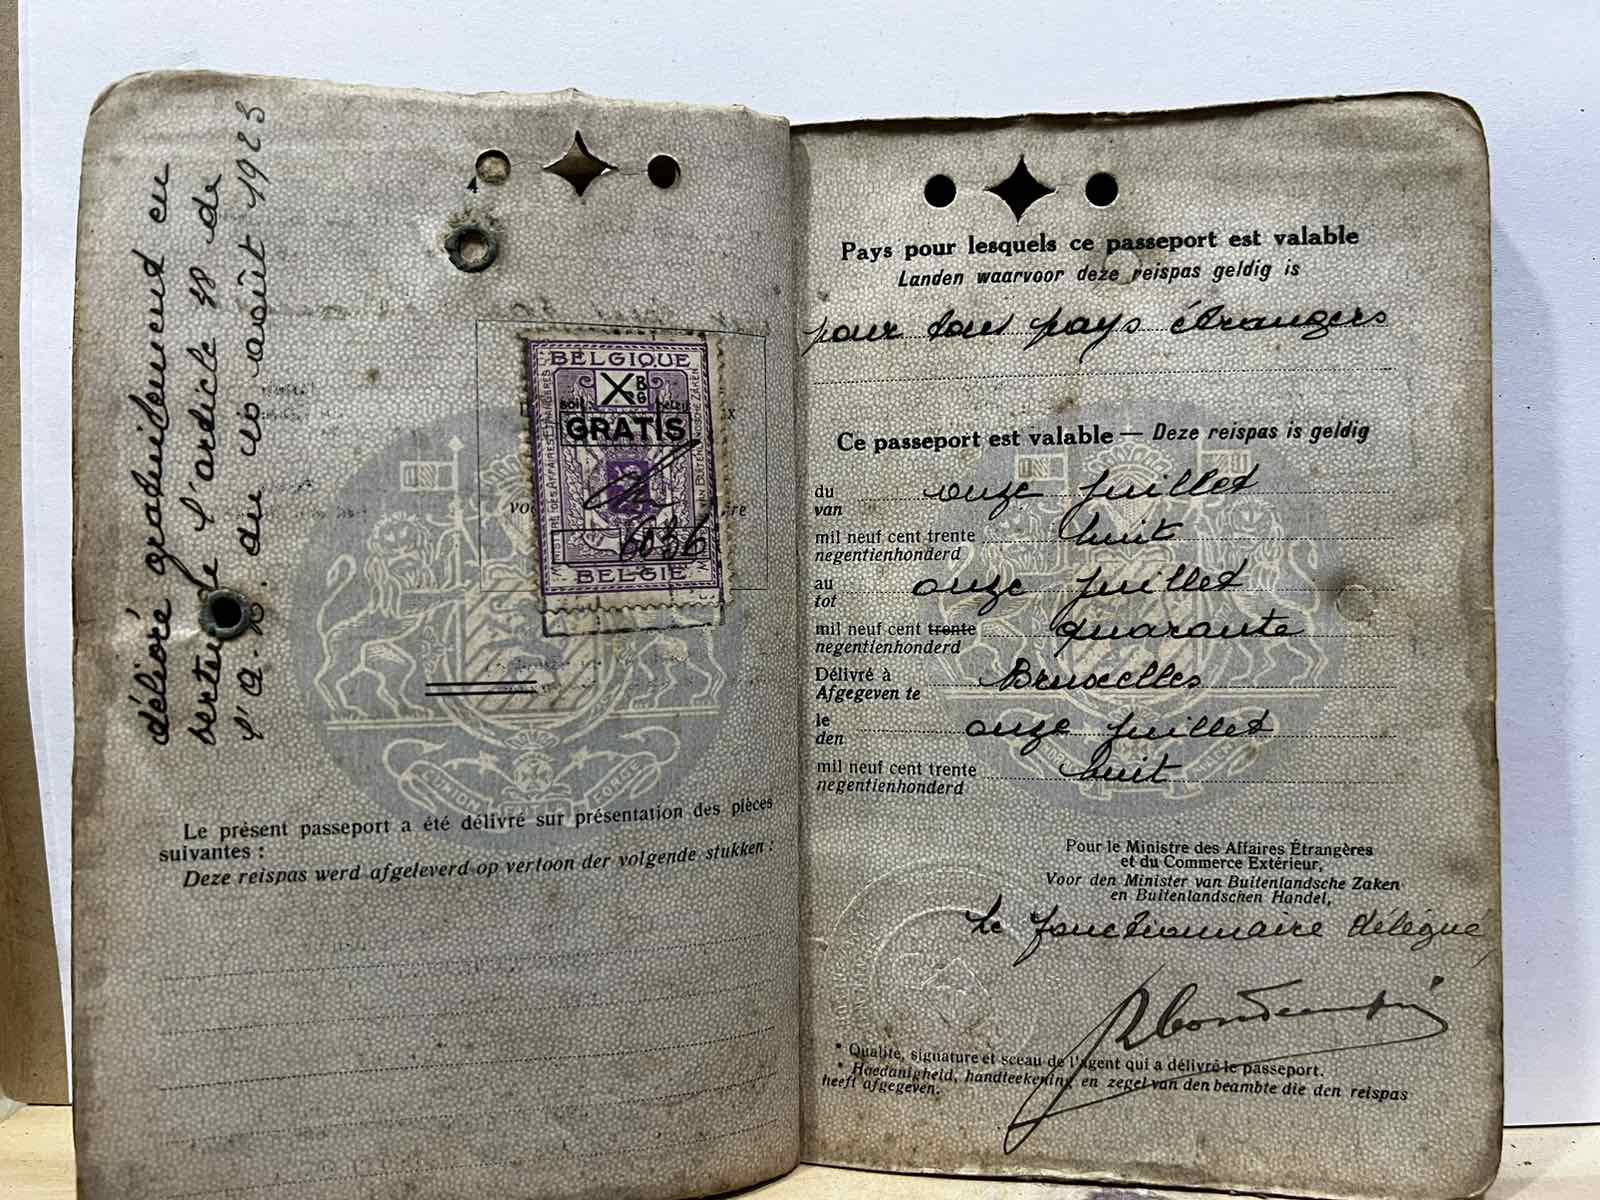 délivré gratuitement en
vertu de l'article 18 de
l'A. R. du 10 août 1923
4
BELGIQUE
X
GRATIS
6036
BELGIË
Le présent passeport a été délivré sur présentation des pièces
suivantes :
Deze reispas werd afgeleverd op vertoon der volgende stukken :
Pays pour lesquels ce passeport est valable
Landen waarvoor deze reispas geldig is
pour tous pays étrangers
Ce passeport est valable — Deze reispas is geldig
du onze juillet
van
mil neuf cent trente huit
negentienhonderd
au onze juillet
tot
mil neuf cent trente quarante
negentienhonderd
Délivré à Bruxelles
Afgegeven te
le onze juillet
den
mil neuf cent trente huit
negentienhonderd
Pour le Ministre des Affaires Étrangères
et du Commerce Extérieur,
Voor den Minister van Buitenlandsche Zaken
en Buitenlandschen Handel,
Le fonctionnaire délégué,
* Qualité, signature et sceau de l'agent qui a délivré le passeport.
* Hoedanigheid, handteekening en zegel van den beambte die den reispas
heeft afgegeven.